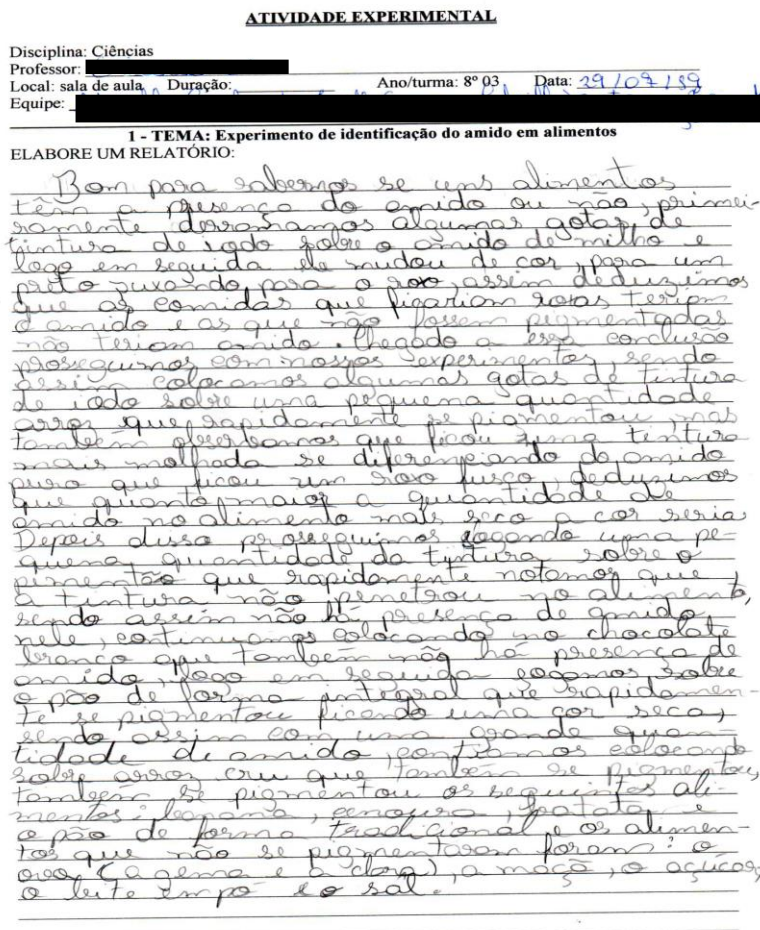 ATIVIDADE EXPERIMENTAL
Disciplina: Ciências
Professor:
Local: sala de aula Duração: Ano/turma: 8º 03 Data:
Equipe:
1 - TEMA: Experimento de identificação do amido em alimentos
ELABORE UM RELATÓRIO:
Bom para sabermos se uns alimentos
têm a presença do amido ou não, primei-
ramente derramamos algumas gotas de
tintura de iodo sobre o amido de milho e
logo em seguida ele mudou de cor, para um
preto puxando para o roxo, assim deduzimos
que as comidas que ficariam roxas teriam
o amido e as que não fossem pigmentadas
não teriam amido. Chegado a essa conclusão
prosseguimos com nossos experimentos, sendo
assim colocamos algumas gotas de tintura
de iodo sobre uma pequena quantidade
arroz que rapidamente se pigmentou, mas
também observamos que ficou uma tintura
mais molhada se diferenciando do amido
puro que ficou um roxo fusco, deduzimos
que quanto maior a quantidade de
amido no alimento mais seco a cor seria
Depois disso prosseguimos jogando uma pe-
quena quantidade da tintura sobre o
pimentão que rapidamente notamos que
a tintura não penetrou no alimento,
sendo assim não há presença de amido
nele, continuamos colocando no chocolate
branco que também não há presença de
amido, logo em seguida jogamos sobre
o pão de forma integral que rapidamen-
te se pigmentou ficando uma cor seca,
sendo assim com uma grande quan-
tidade de amido, colocando
sobre arroz cru que também se pigmentou,
também se pigmentou os seguintes ali-
mentos: banana, cenoura, batata e
o pão de forma tradicional e os alimen-
tos que não se pigmentaram foram: o
ovo (a gema e a clara), a maçã, o açúcar,
o leite em pó e o sal.